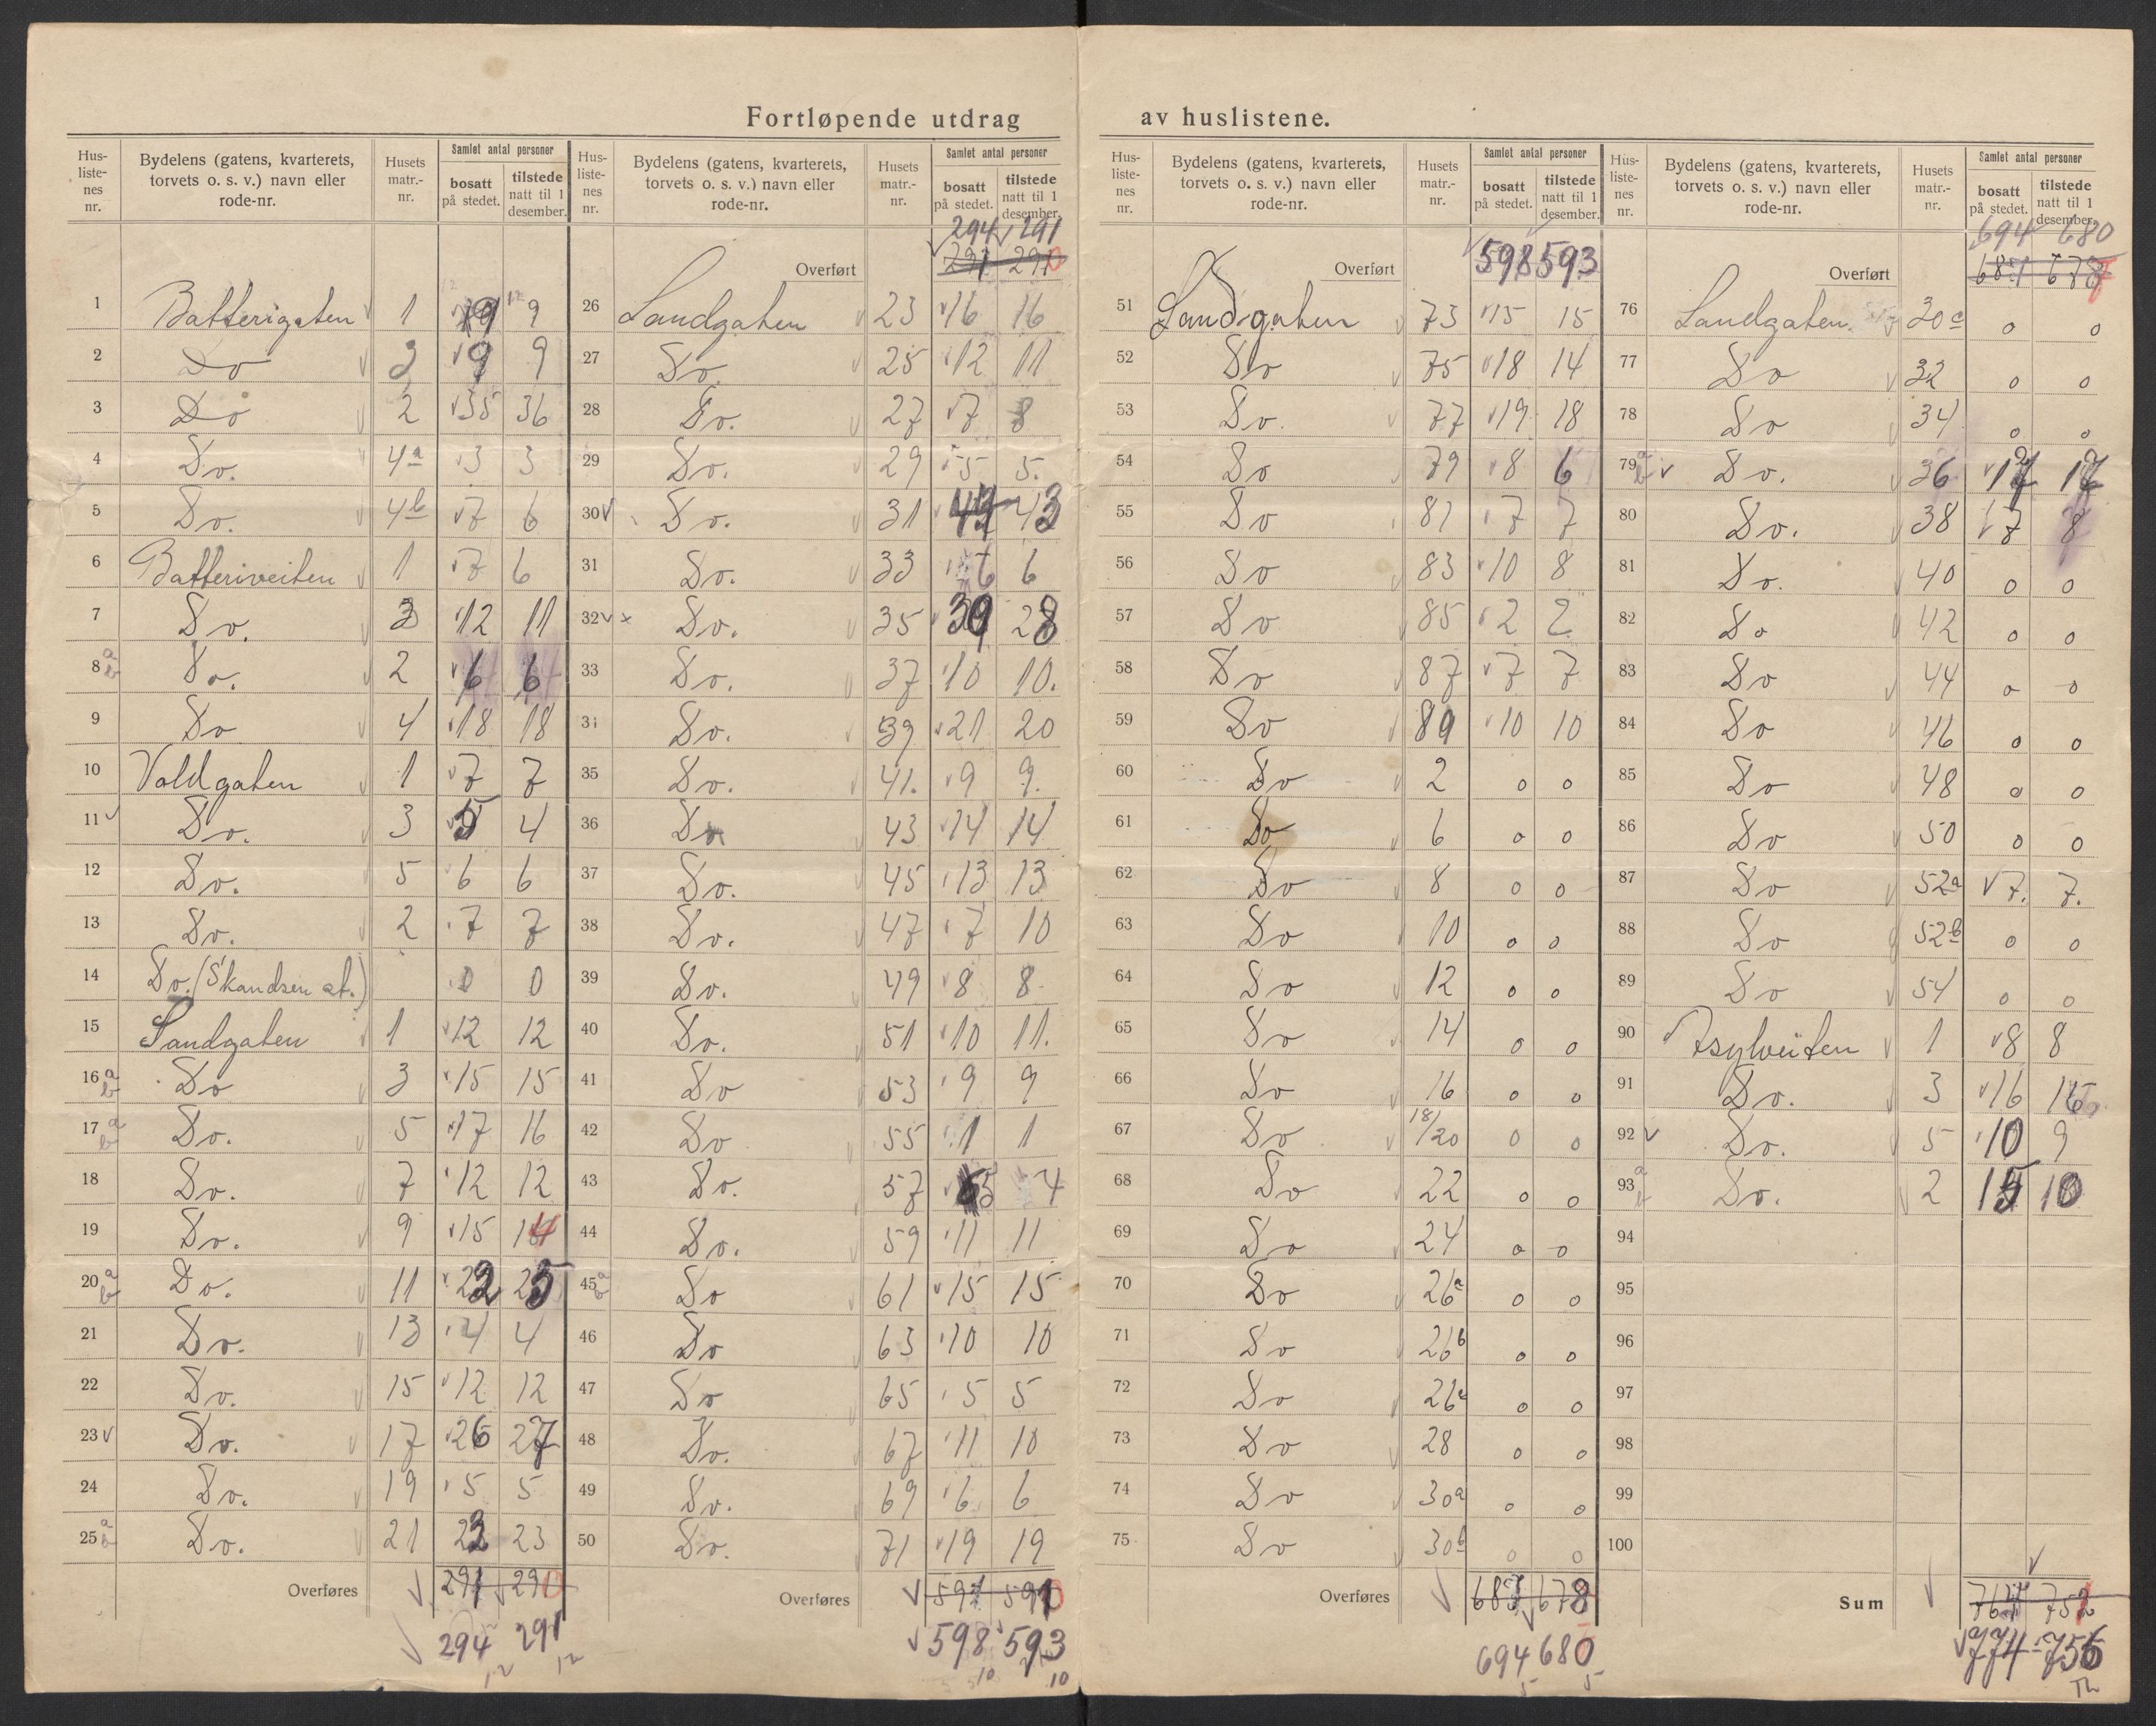 Fortløpende utdrag av huslistene.
Hus-listenes nr. | Bydelens (gatens, kvarterets, torvets o. s. v.) navn eller rode-nr. | Husets matr.-nr. | Samlet antal personer bosatt på stedet. | tilstede natt til 1 desember.
1 Batterigaten 1 9
2 Do 3 9 9
3 Do 2 35 36
4 Do. 4a 3 3
5 Do. 4b 7 6
6 Batteriveiten 1 7 6
7 Do. 3 12 11
8 a b Do. 2 6 6
9 Do 4 18 18
10 Voldgaten 1 7 7
11 Do. 3 5 4
12 Do. 5 6 6
13 Do. 2 7 7
14 Do. (Skandsen st.) 0 0
15 Sandgaten 1 12 12
16 a b Do 3 15 15
17 a b Do. 5 17 16
18 Do. 7 12 12
19 Do. 9 15 14
20 a b Do. 11 22 25
21 Do. 13 4 4
22 Do. 15 12 12
23 Do. 17 26 27
24 Do. 19 5 5
25 a b Do. 21 23 23
Overføres 291 290
294 291
12 12
Hus-listenes nr. | Bydelens (gatens, kvarterets, torvets o. s. v.) navn eller rode-nr. | Husets matr.-nr. | Samlet antal personer bosatt på stedet. | tilstede natt til 1 desember.
294 291
Overført 291 290
26 Sandgaten 23 16 16
27 Do. 25 12 11
28 Do. 27 7 8
29 Do. 29 5 5.
30 Do. 31 43
31 Do. 33 6 6
32 x Do. 35 30 28
33 Do. 37 10 10.
34 Do. 39 21 20
35 Do. 41. 9 9.
36 Do 43 14 14
37 Do. 45 13 13
38 Do. 47 7 10
39 Do. 49 8 8
40 Do. 51 10 11.
41 Do 53 9 9
42 Do 55 1 1
43 Do. 57 5 4
44 Do. 59 11 11
45 a b Do 61 15 15
46 Do 63 10 10
47 Do 65 5 5
48 Do. 67 11 10
49 Do. 69 6 6
50 Do. 71 19 19
Overføres 591 590
598 593
10 10
Hus-listenes nr. | Bydelens (gatens, kvarterets, torvets o. s. v.) navn eller rode-nr. | Husets matr.-nr. | Samlet antal personer bosatt på stedet. | tilstede natt til 1 desember.
Overført 598 593
51 Sandgaten 73 15 15
52 Do 75 18 14
53 Do. 77 19 18
54 Do 79 8 6
55 Do 81 7 7
56 Do 83 10 8
57 Do 85 2 2
58 Do 87 7 7
59 Do 89 10 10
60 Do 2 0 0
61 Do 6 0 0
62 Do 8 0 0
63 Do 10 0 0
64 Do 12 0 0
65 Do 14 0 0
66 Do 16 0 0
67 Do 18/20 0 0
68 Do 22 0 0
69 Do 24 0 0
70 Do 26a 0 0
71 Do 26b 0 0
72 Do 26c 0 0
73 Do 28 0 0
74 Do 30a 0 0
75 Do 30b 0 0
Overføres 687 678
694 680
5 5
Hus-listenes nr. | Bydelens (gatens, kvarterets, torvets o. s. v.) navn eller rode-nr. | Husets matr.-nr. | Samlet antal personer bosatt på stedet. | tilstede natt til 1 desember.
694 680
Overført 687 677
76 Sandgaten 30c 0 0
77 Do 32 0 0
78 Do 34 0 0
79 a b Do. 36 17 17
80 Do. 38 7 8
81 Do. 40 0 0
82 Do 42 0 0
83 Do 44 0 0
84 Do 46 0 0
85 Do 48 0 0
86 Do 50 0 0
87 Do 52a 7. 7.
88 Do 52b 0 0
89 Do 54 0 0
90 Asylveiten 1 8 8
91 Do. 3 16
92 Do. 5 10 9
93 a Do. 2 15 10
94
95
96
97
98
99
100
Sum 764 751
774 756
Th